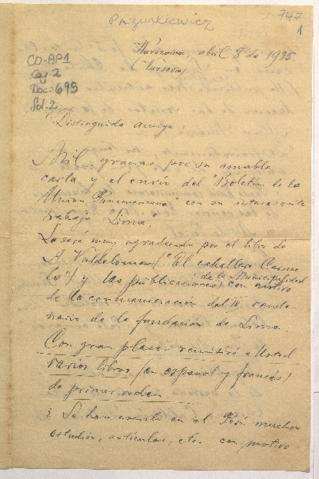 Pazurkiewicz
747
1
CD-AP1
Cog 2
Doc-695
Sol-2
Warszawa, abril 8 de 1935
(Varsovia)
Distinguido amigo:
Mil gracias por su amable
carta y el envío del "Boletín de la
Unión Panamericana" con su interesante
trabajo Lima.
Le seré muy agradecido por el libro de
A. Valdelomar ("El caballero Carme
lo") y las publicaciones de la Municipalidad con motivo
de la conmemoración del IV cente
nario de la fundación de Lima.
Con gran placer remitiré a Usted
varios libros (en español y francés)
de primer orden
¿Se han escrito en el Perú muchos
estudios, artículos, etc. con motivo